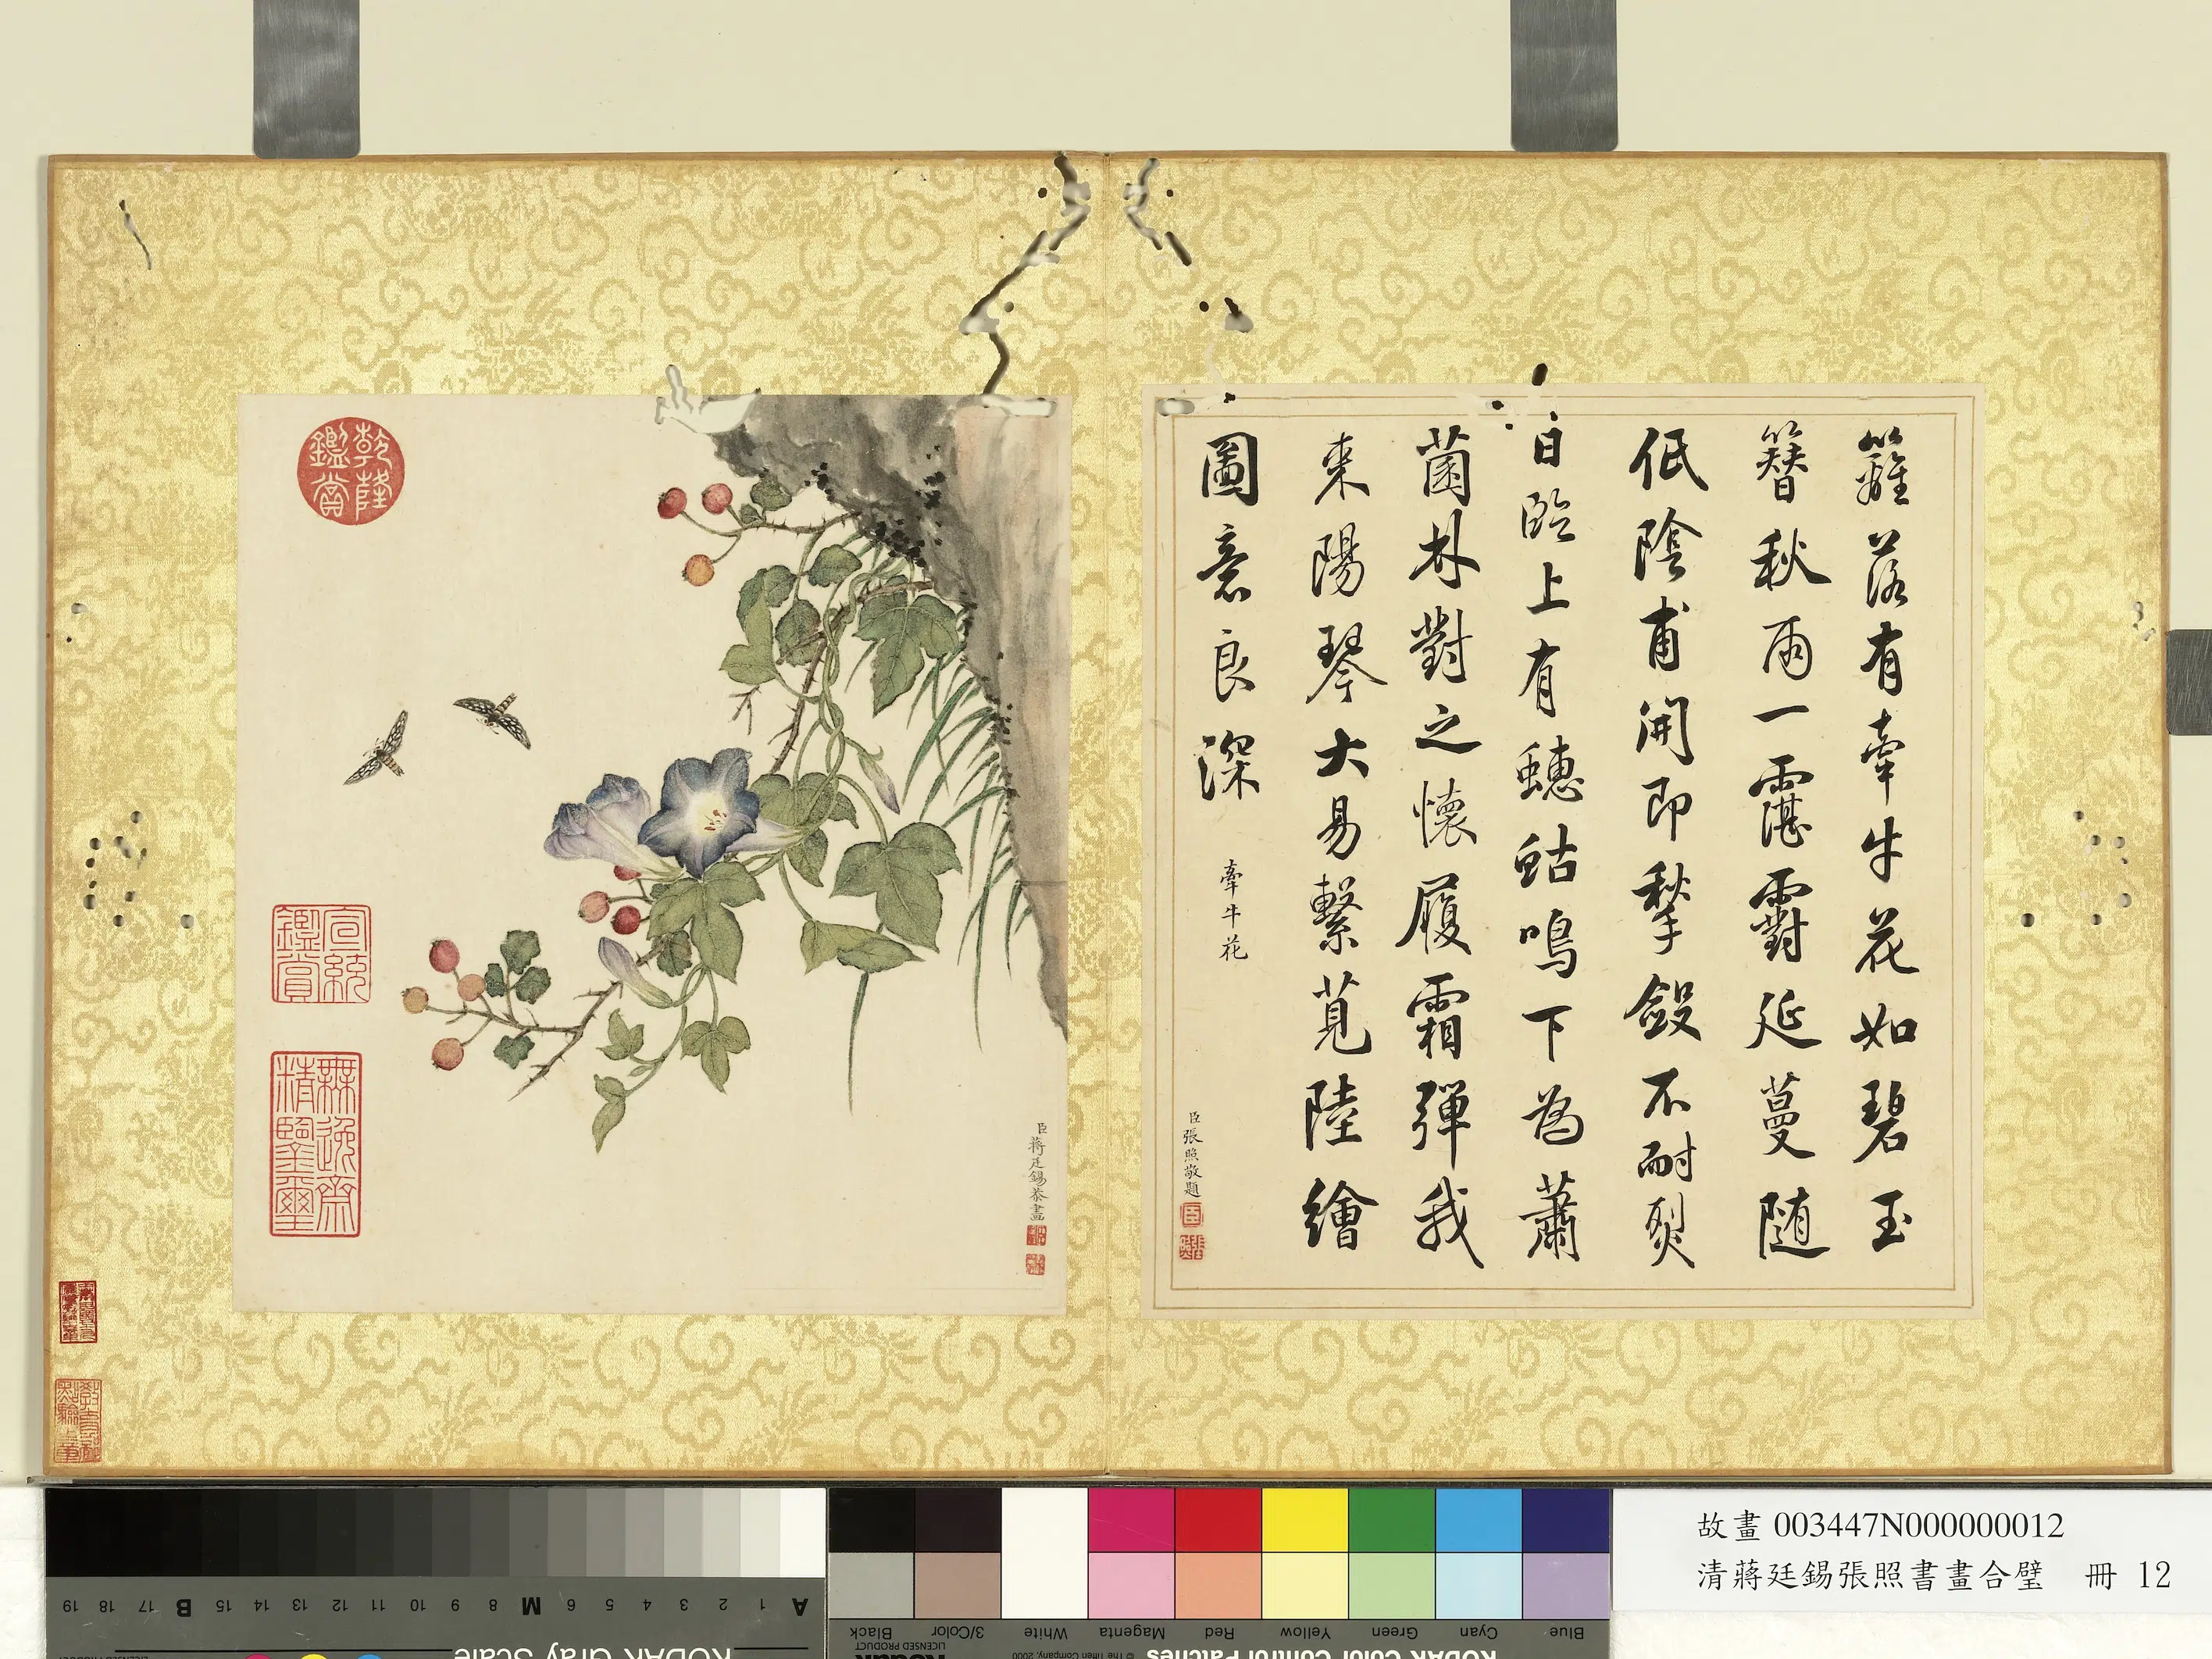 籬落有牽牛花如碧玉
簪秋雨一霮䨴延蔓隨
低陰甫開即揫斂不耐烈
日臨上有蟪蛄鳴下為蕭
菌朴對之懷履霜彈我
來陽琴大易繫莧陸繪
圖意良深
牽牛花
臣張照敬題
臣蔣廷錫恭畫
乾隆
鑑賞
宣統
鑑賞
無逸齋
精鑒璽
故畫 003447N000000012
清蔣廷錫張照書畫合璧 冊 12
A 1 2 3 4 5 6 M 8 9 10 11 12 13 14 15 B 17 18 19
KODAK Gray Scale
Blue Cyan Green Yellow Red Magenta White 3/Color Black
KODAK Color Control Patches
© The Tiffen Company, 2000
LICENSED PRODUCT